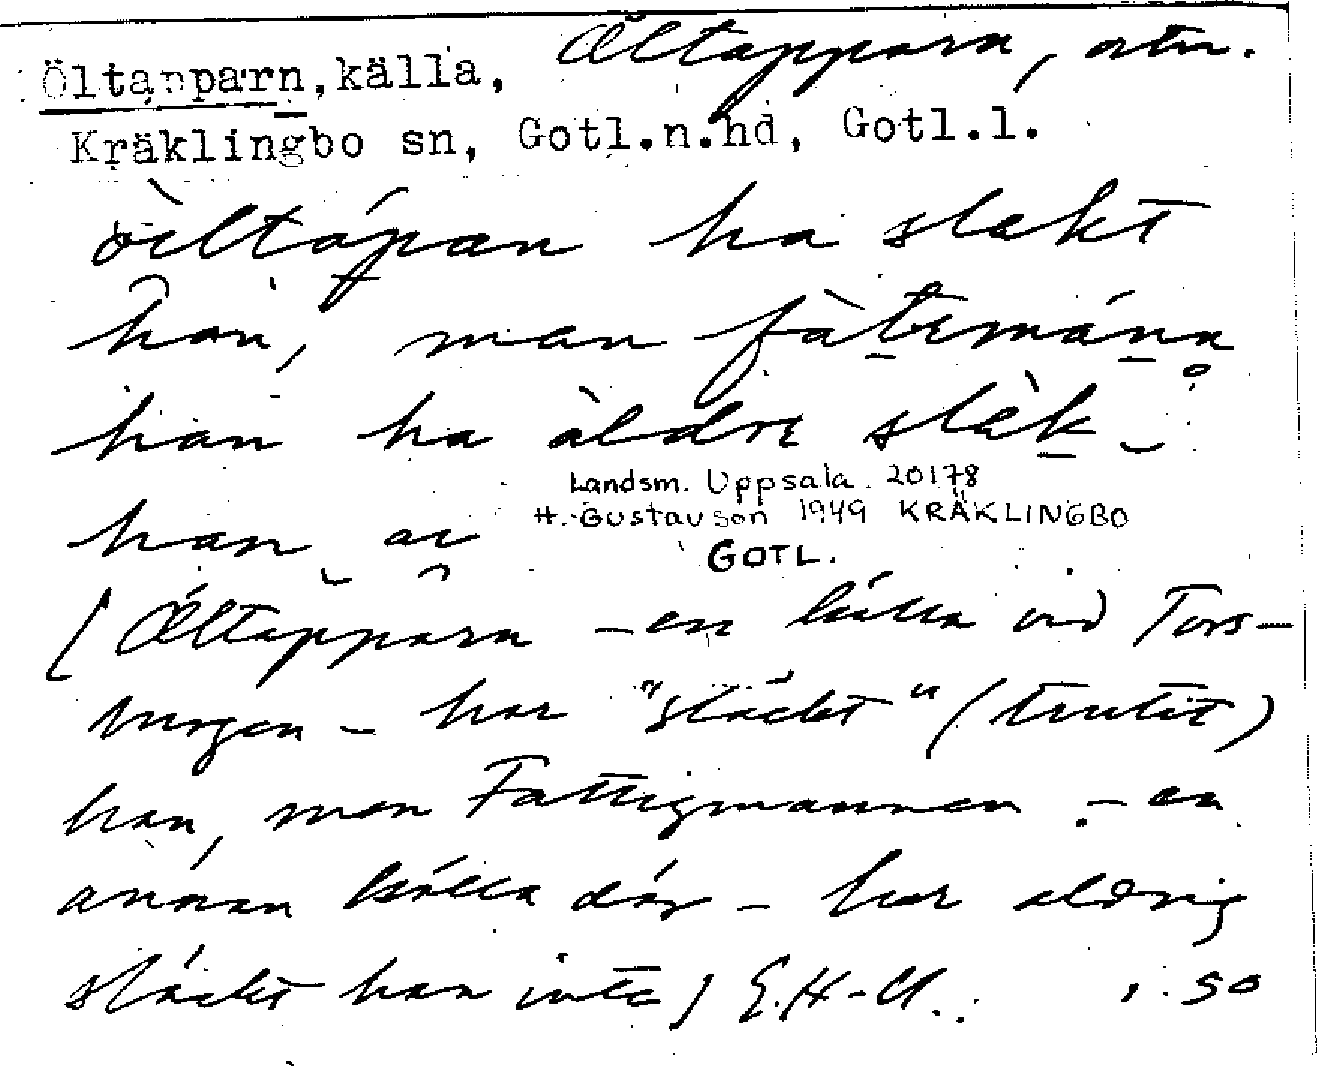 Öltapparn, ortn.
Öltapparn, källa,
Kräklingbo sn, Gotl.n.hd, Gotl.l.
öiltápan ha slekt
han, men fàtimána
han ha àldri slèk
han
Landsm. Uppsala. 20178
H. Gustavson 1949 KRÄKLINGBO
GOTL.
[Öltapparn – en källa vid Tors-
burgen – har "släckt" (trutit)
han, men Fattigmannen – en
annan källa där – har aldrig
släckt han inte] E.H-U. 1. 50